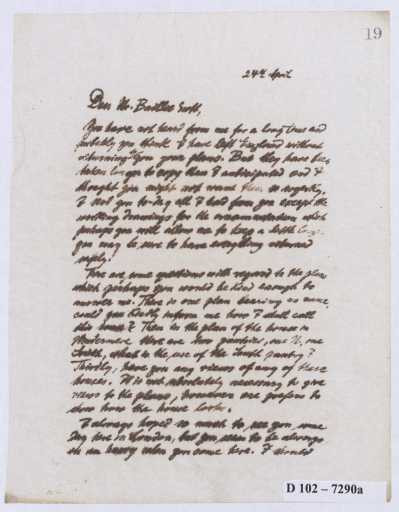 19
24th April
Dear Mr. Baillie Scott,
You have not heard from me for a long time and
probably you think I have left England without
returning you your plans. But they have been
taken longer to copy than I anticipated and I
thought you might not want them so urgently.
I send you to-day all I had from you except the
working drawings for the accommodation which
perhaps you will allow me to keep a little longer.
you may be sure to have everything returned
safely!
There are some questions with regard to the plans
which perhaps you would be kind enough to
answer me. There is one plan bearing no name,
could you kindly inform me how I shall call
this house? Then in the plan of the house in
Windermere there are two pantries, one N, one
South, what is the use of the South pantry?
Thirdly, have you any views of any of these
houses. It is not absolutely necessary to give
views to the plans, however one prefers to
show how the house looks.
I always hoped so much to see you some
day here in London, but you seem to be always
in a hurry when you come here. I should
D 102 – 7290a